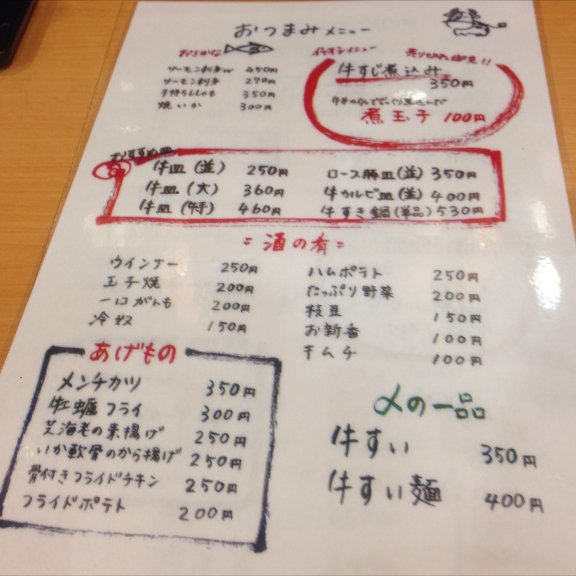 おつまみメニュー
おさかな
サーモン刺身W 450円
サーモン刺身 270円
子持ちししゃも 350円
焼いか 300円
イチオシメニュー
売り切れ御免!!
牛すじ煮込み
350円
煮玉子 100円
おすすめ皿
牛皿(並) 250円
牛皿(大) 360円
牛皿(特) 460円
ロース豚皿(並) 350円
牛カルビ皿(並) 400円
牛すき鍋(単品) 530円
=酒の肴=
ウインナー 250円
玉子焼 200円
一口がんも 200円
冷奴 150円
ハムポテト 250円
たっぷり野菜 200円
枝豆 150円
お新香 100円
キムチ 100円
あげもの
メンチカツ 350円
牡蠣フライ 300円
芝海老の素揚げ 250円
いか軟骨のから揚げ 250円
骨付きフライドチキン 250円
フライドポテト 200円
〆の一品
牛すい 350円
牛すい麺 400円